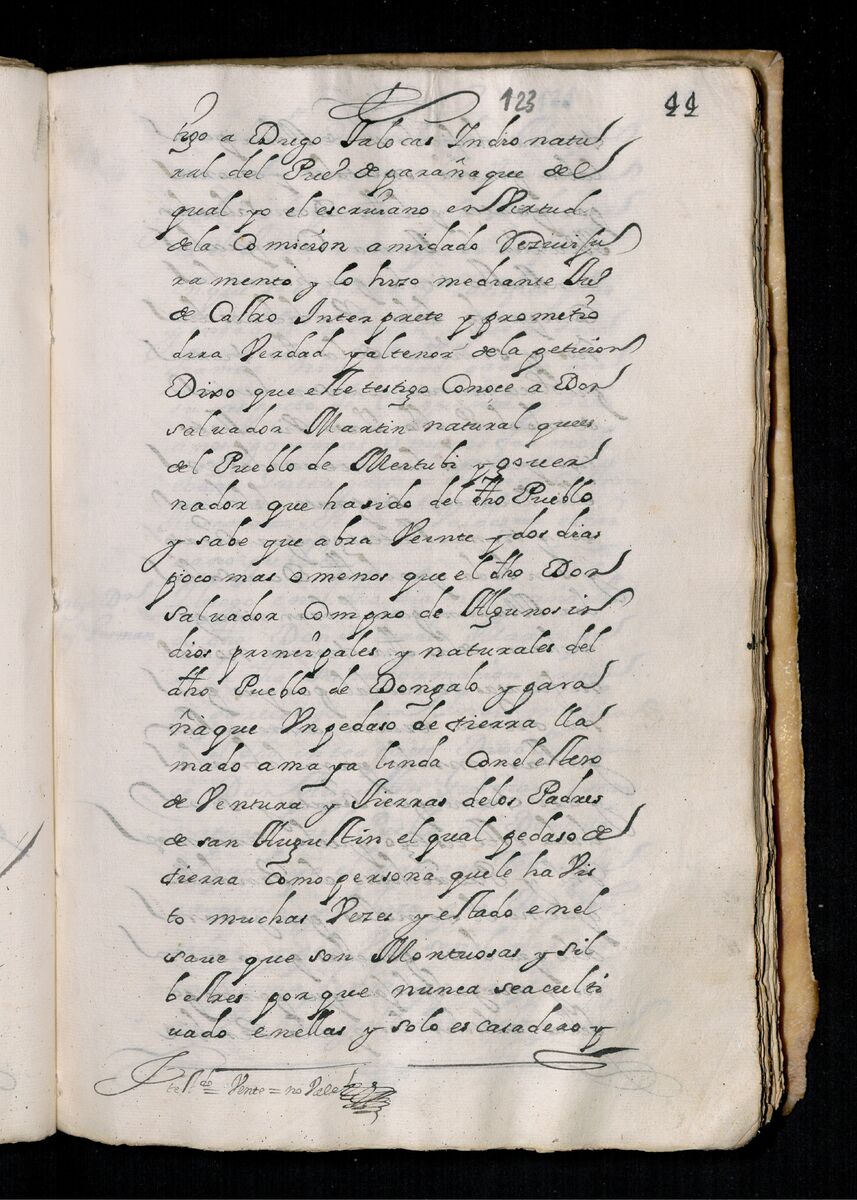 123
44
tigo a Diego Talocas Yndio natu
ral del Pueº de parañaque del
qual yo el escriuano en Vertud
de la Comicion a mi dado Reziui ju
ramento y lo hizo mediante Juº
de Castro Interprete y prometio
dira Verdad y al tenor de la peticion
Dixo que este testigo Conoçe a Don
saluador Martin natural ques
del Pueblo de Meytubi y gouer
nador que ha sido del dho Pueblo
y sabe que abra Veinte y dos dias
poco mas o menos que el dho Don
saluador Compro de Algunos in
dios prinçipales y naturales del
dho Pueblo de Dongalo y para
ñaque Un pedaso de tierra lla
mado amaya linda Con el estero
de Ventura y Tierras de los Padres
de san Augustin el qual pedaso de
tierra Como persona que le ha Vis
to muchas Vezes y estado en el
saue que son Montuosas y sil
bestres porque nunca se a culti
uado en ellas y solo es casadero y
tesdo = Vente = no Vale